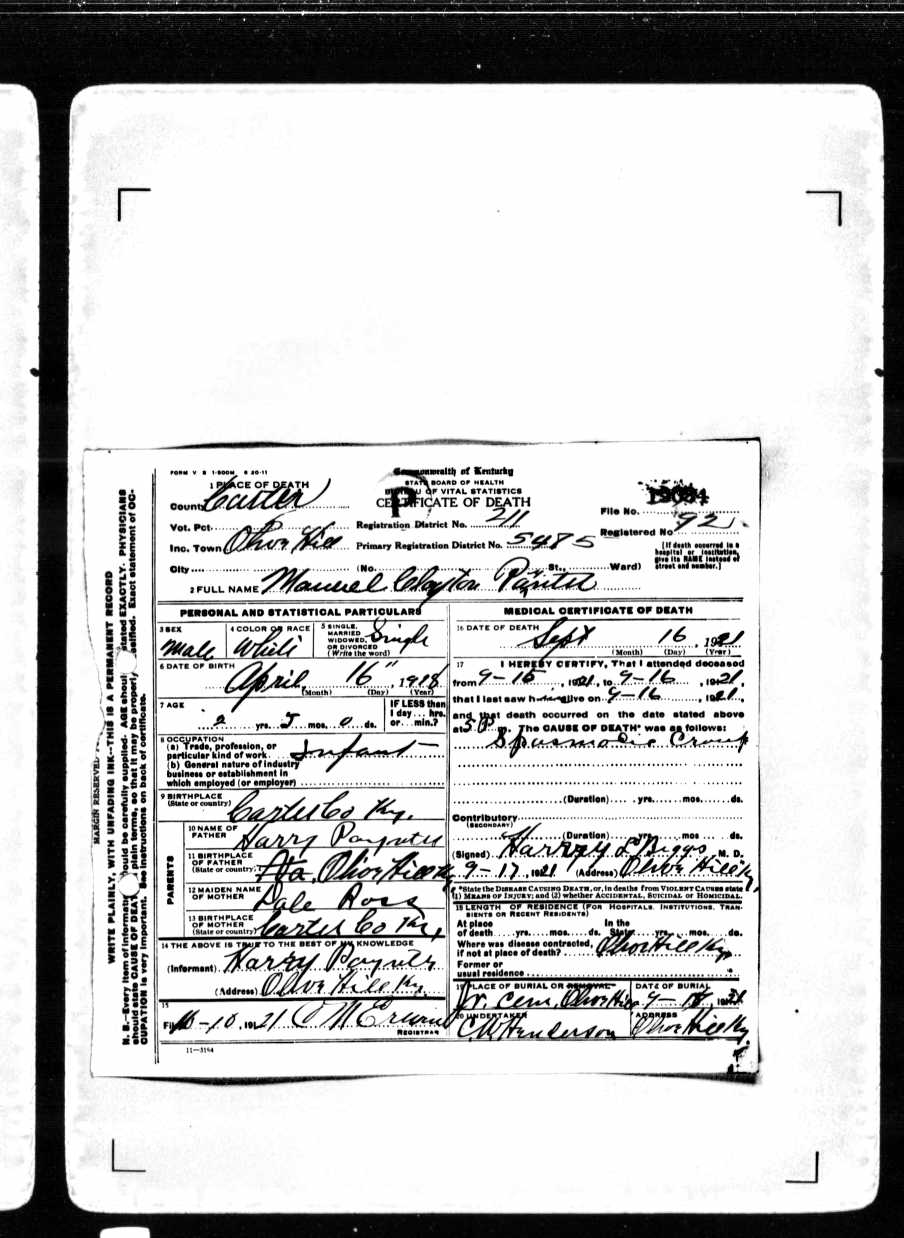 FORM V S 1-500M 6 20-11
Commonwealth of Kentucky
STATE BOARD OF HEALTH
BUREAU OF VITAL STATISTICS
CERTIFICATE OF DEATH
1 PLACE OF DEATH
County Carter
Vot. Pct.
Inc. Town Olive Hill
City (No. St., Ward)
Registration District No. 211
Primary Registration District No. 5485
File No.
Registered No 92
[If death occurred in a
hospital or institution,
give its NAME instead of
street and number.]
2 FULL NAME Clayton
PERSONAL AND STATISTICAL PARTICULARS
3 SEX
Male
4 COLOR OR RACE
White
5 SINGLE,
MARRIED
WIDOWED,
OR DIVORCED
(Write the word)
Single
6 DATE OF BIRTH
April 16", 1918
(Month) (Day) (Year)
7 AGE
2 yrs. 5 mos. 0 ds.
IF LESS than
1 day... hrs.
or... min.?
8 OCCUPATION
(a) Trade, profession, or
particular kind of work Infant
(b) General nature of industry
business or establishment in
which employed (or employer)
9 BIRTHPLACE
(State or country) Carter Co Ky.
PARENTS
10 NAME OF
FATHER
Harry Paynter
11 BIRTHPLACE
OF FATHER
(State or country) Olive Hill Ky
12 MAIDEN NAME
OF MOTHER
Dale Ross
13 BIRTHPLACE
OF MOTHER
(State or country) Carter Co Ky,
14 THE ABOVE IS TRUE TO THE BEST OF MY KNOWLEDGE
(Informant) Harry Paynter
(Address) Olive Hill Ky.
15
Filed 10-10, 1921 Erwin
REGISTRAR
11-3184
MEDICAL CERTIFICATE OF DEATH
16 DATE OF DEATH
Sept 16, 1921
(Month) (Day) (Year)
17 I HEREBY CERTIFY, That I attended deceased
from 9-15, 1921, to 9-16, 1921,
that I last saw him alive on 9-16, 1921,
and that death occurred on the date stated above
at 5 P m. The CAUSE OF DEATH* was as follows:
Spasmodic Croup
(Duration) yrs. mos. ds.
Contributory
(SECONDARY)
(Duration) yrs. mos. ds.
(Signed) Harry L Biggs M. D.
9-17, 1921 (Address) Olive Hill Ky,
*State the DISEASE CAUSING DEATH, or, in deaths from VIOLENT CAUSES state
(1) MEANS OF INJURY; and (2) whether ACCIDENTAL, SUICIDAL or HOMICIDAL.
18 LENGTH OF RESIDENCE (FOR HOSPITALS, INSTITUTIONS, TRANSIENTS OR RECENT RESIDENTS)
At place In the
of death yrs. mos. ds. State yrs. mos. ds.
Where was disease contracted,
if not at place of death? Olive Hill Ky,
Former or
usual residence
19 PLACE OF BURIAL OR REMOVAL
Cem. Olive Hill
DATE OF BURIAL
1921
20 UNDERTAKER
C W Henderson
ADDRESS
Olive Hill Ky.
MARGIN RESERVED
WRITE PLAINLY, WITH UNFADING INK--THIS IS A PERMANENT RECORD
N. B.--Every item of information should be carefully supplied. AGE should be stated EXACTLY. PHYSICIANS
should state CAUSE OF DEATH in plain terms, so that it may be properly classified. Exact statement of OC-
CUPATION is very important. See instructions on back of certificate.